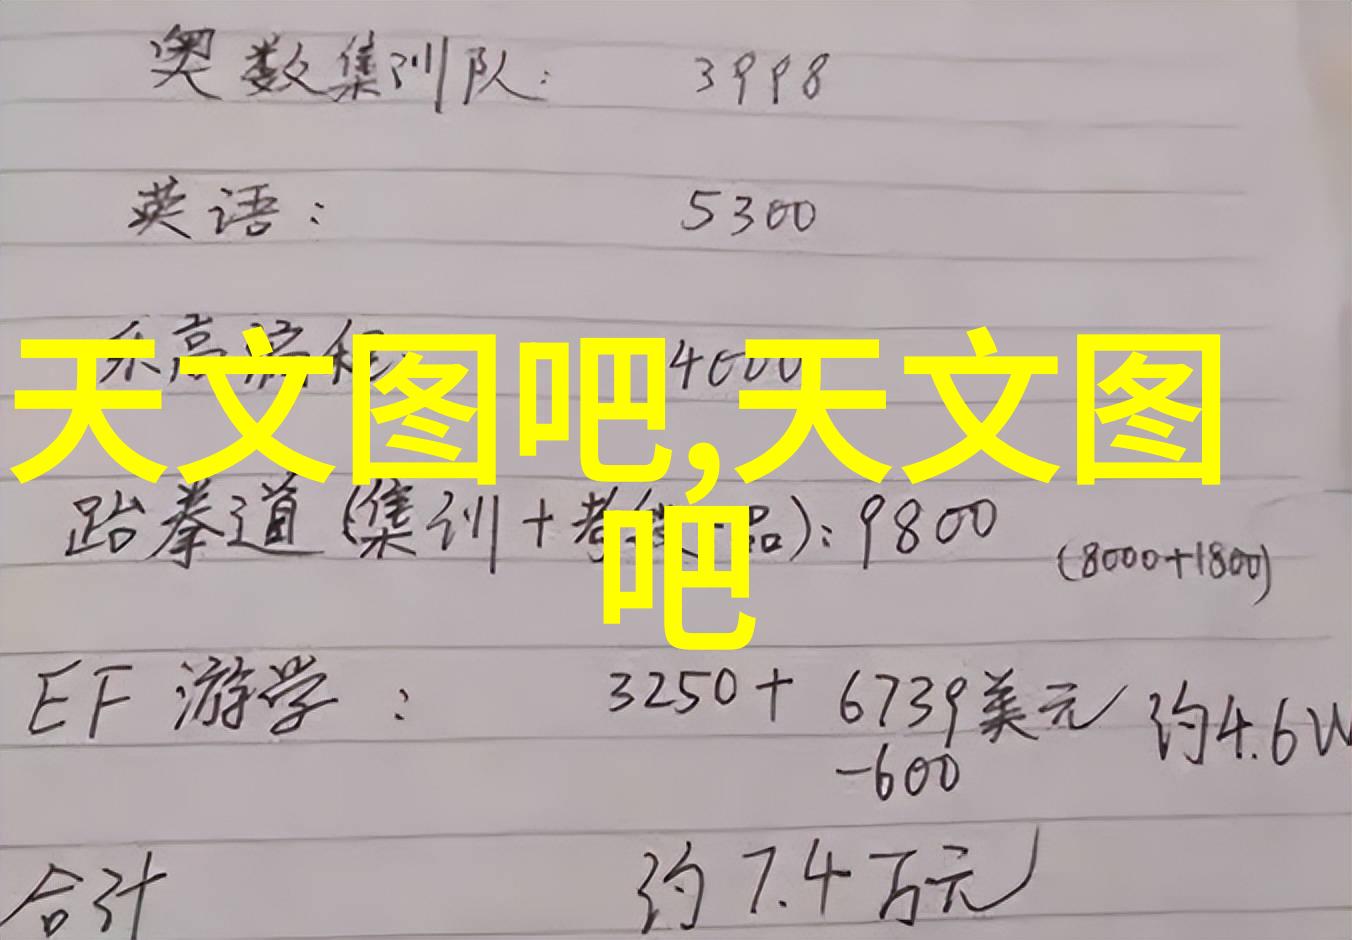 奥数集训队: 3998
英语: 5300
乐高编程 4000
天文图吧,天文图
吧
跆拳道(集训+考级一品):9800 (8000+1800)
EF 游学: 3250+ 6739美元 约4.6W
-600
合计 约7.4万元